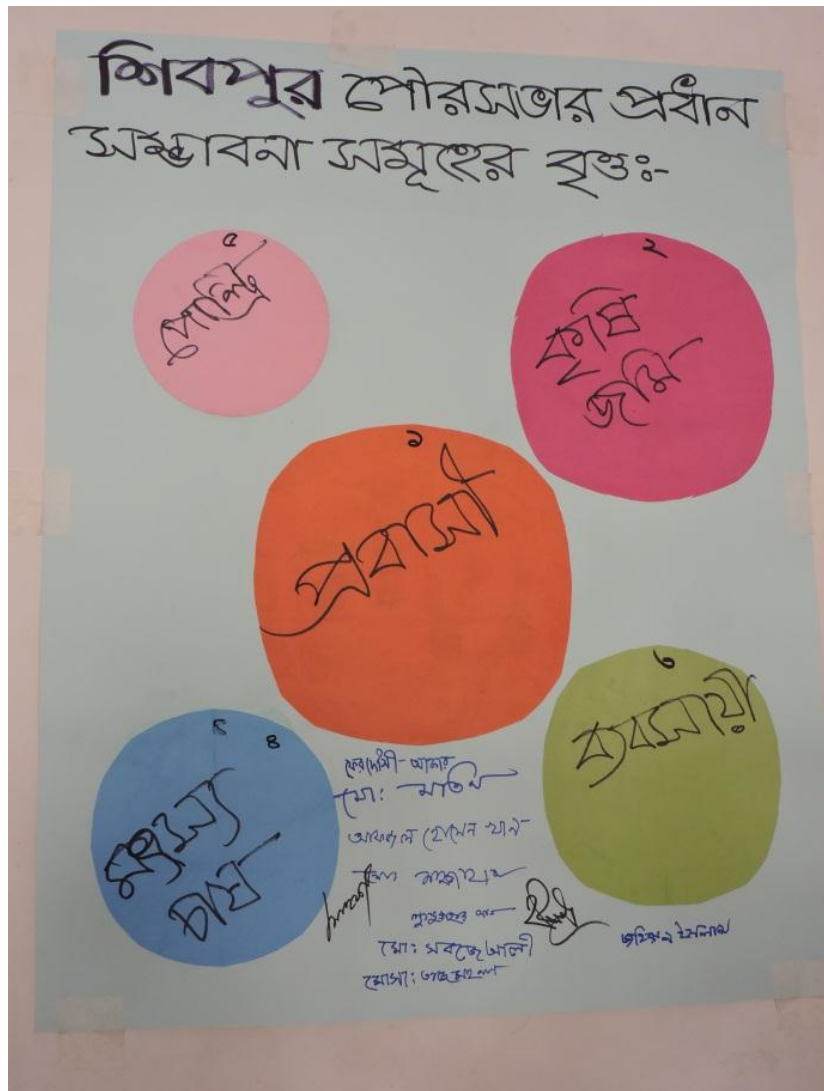 শিবপুর পৌরসভার প্রধান
সম্ভাবনা সমূহের বৃত্তঃ-
৫
পোল্ট্রি
২
কৃষি
জমি
১
প্রবাসী
৩
ব্যবসায়ী
৪
মৎস্য
চাষ
ফেরদৌসী আক্তার
মো: মতিন
আফজাল হোসেন খান
মো: সবজে আলী
মোসা:
ইসলাম